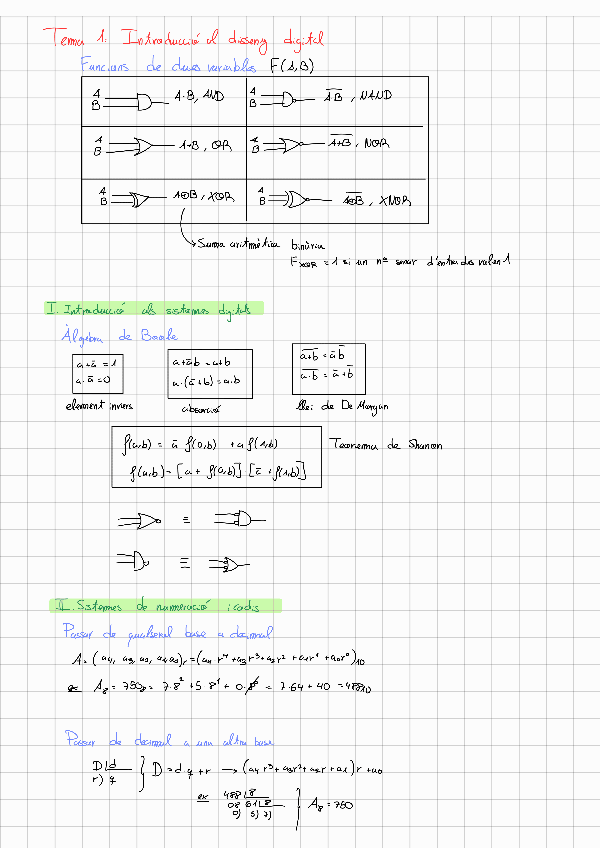 Tema 1. Introducció al disseny digital
Funcions de dues variables F(A,B)
A B A·B, AND A B \overline{AB}, NAND
A B A+B, OR A B \overline{A+B}, NOR
A B A⊕B, XOR A B \overline{A⊕B}, XNOR
Suma aritmètica binària
F_{XOR} = 1 si un nº senar d'entrades valen 1
I. Introducció als sistemes digitals
Àlgebra de Boole
a+ā = 1
a·ā = 0
element invers
a+āb = a+b
a·(ā+b) = a·b
absorció
\overline{a+b} = ā \overline{b}
\overline{a·b} = ā + \overline{b}
llei de De Morgan
f(a,b) = ā f(0,b) + a f(1,b)
f(a,b) = [a + f(0,b)]·[ā + f(1,b)]
Teorema de Shanon
≡
≡
II. Sistemes de numeració i codis
Passar de qualsevol base a decimal
A = (a₄, a₃, a₂, a₁, a₀)_r = (a₄ r⁴ + a₃ r³ + a₂ r² + a₁ r¹ + a₀ r⁰)₁₀
ex A₈ = 750₈ = 7·8² + 5·8¹ + 0·8⁰ = 7·64 + 40 = 488₁₀
Passar de decimal a una altra base
D | d
r) q
D = d·q + r → (a₄ r³ + a₃ r² + a₂ r + a₁) r + a₀
ex 488 | 8
08 61 | 8
0) 5) 7)
A₈ = 750